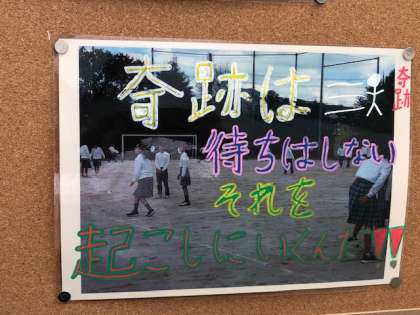 奇跡は
奇跡
待ちはしない
それを
起こしにいくんだ!!